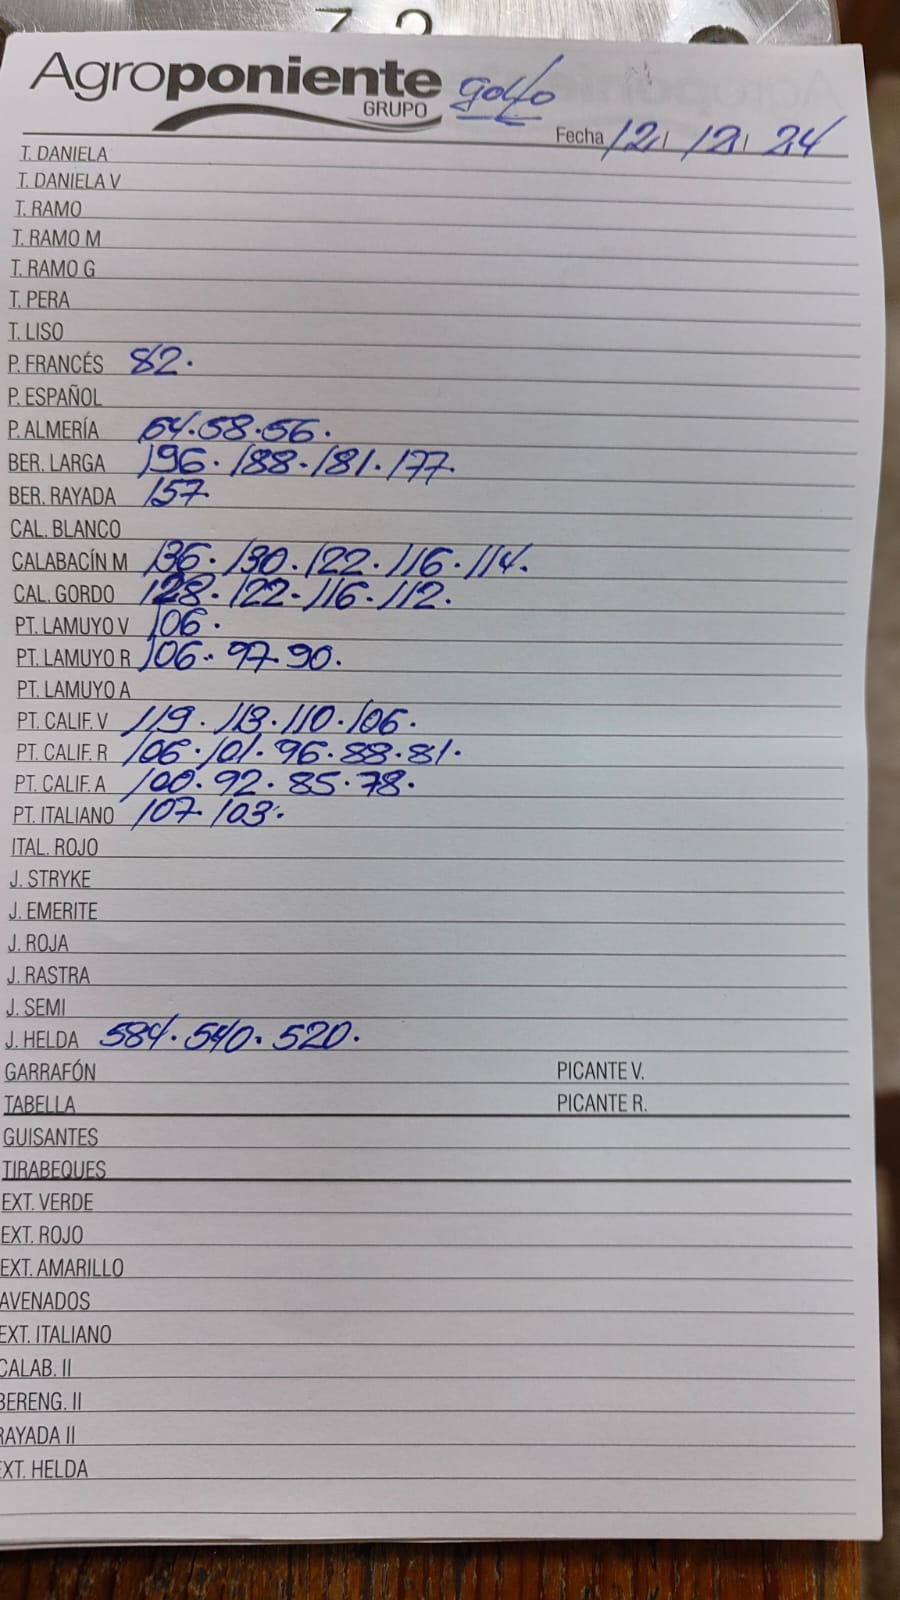 Agroponiente
GRUPO
golfo
Fecha 12/ 12/ 24
T. DANIELA
T. DANIELA V
T. RAMO
T. RAMO M
T. RAMO G
T. PERA
T. LISO
P. FRANCÉS 82.
P. ESPAÑOL
P. ALMERÍA 64.58.56.
BER. LARGA 196.188.181.177.
BER. RAYADA 157
CAL. BLANCO
CALABACÍN M 136.130.122.116.114.
CAL. GORDO 128.122-116.112.
PT. LAMUYO V 106.
PT. LAMUYO R 106.97.90.
PT. LAMUYO A
PT. CALIF. V 119.113.110.106.
PT. CALIF. R 106.101.96.88.81.
PT. CALIF. A 100.92.85.78.
PT. ITALIANO 107.103.
ITAL. ROJO
J. STRYKE
J. EMERITE
J. ROJA
J. RASTRA
J. SEMI
J. HELDA 584.540.520.
GARRAFÓN PICANTE V.
TABELLA PICANTE R.
GUISANTES
TIRABEQUES
EXT. VERDE
EXT. ROJO
EXT. AMARILLO
AVENADOS
EXT. ITALIANO
CALAB. II
BERENG. II
RAYADA II
EXT. HELDA